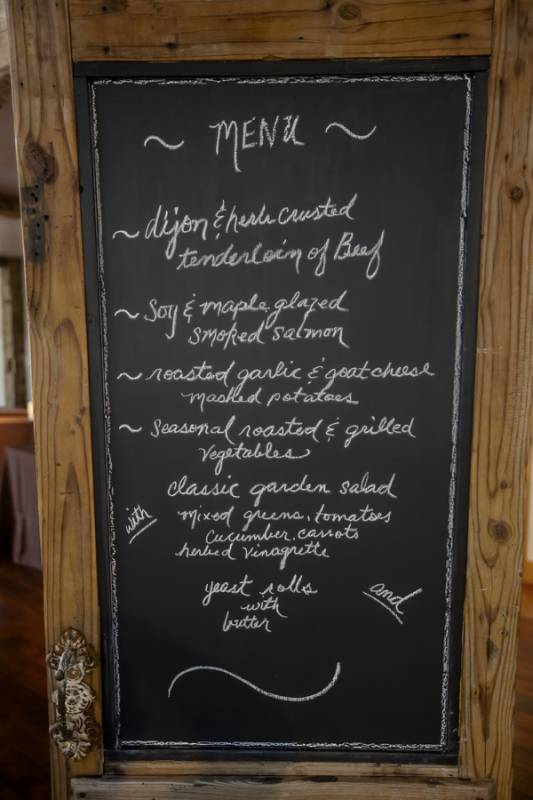 ~ MENU ~
~ dijon & herb crusted
tenderloin of Beef
~ Soy & maple glazed
smoked salmon
~ roasted garlic & goat cheese
mashed potatoes
~ Seasonal roasted & grilled
vegetables
classic garden salad
with
mixed greens, tomatoes
cucumber, carrots
herbed vinagrette
yeast rolls
and
with
butter